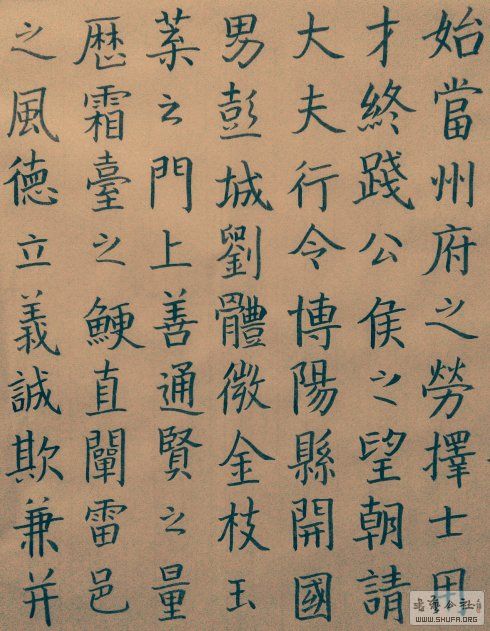 始當州府之勞擇士用
才終踐公侯之望朝請
大夫行令博陽縣開國
男彭城劉體微金枝玉
葉之門上善通賢之量
歴霜臺之鯁直闡雷邑
之風德立義誠欺兼并
WWW.SHUFA.ORG